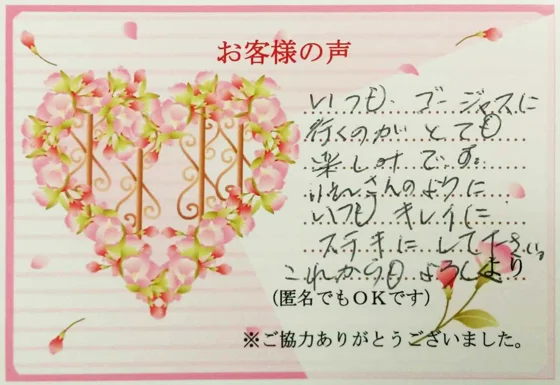 お客様の声
いつも、ゴージャスに
行くのがとても
楽しみです。
さんのように
いつもキレイに
ステキにして下さい。
これからもよろしく
より
(匿名でもOKです)
※ご協力ありがとうございました。